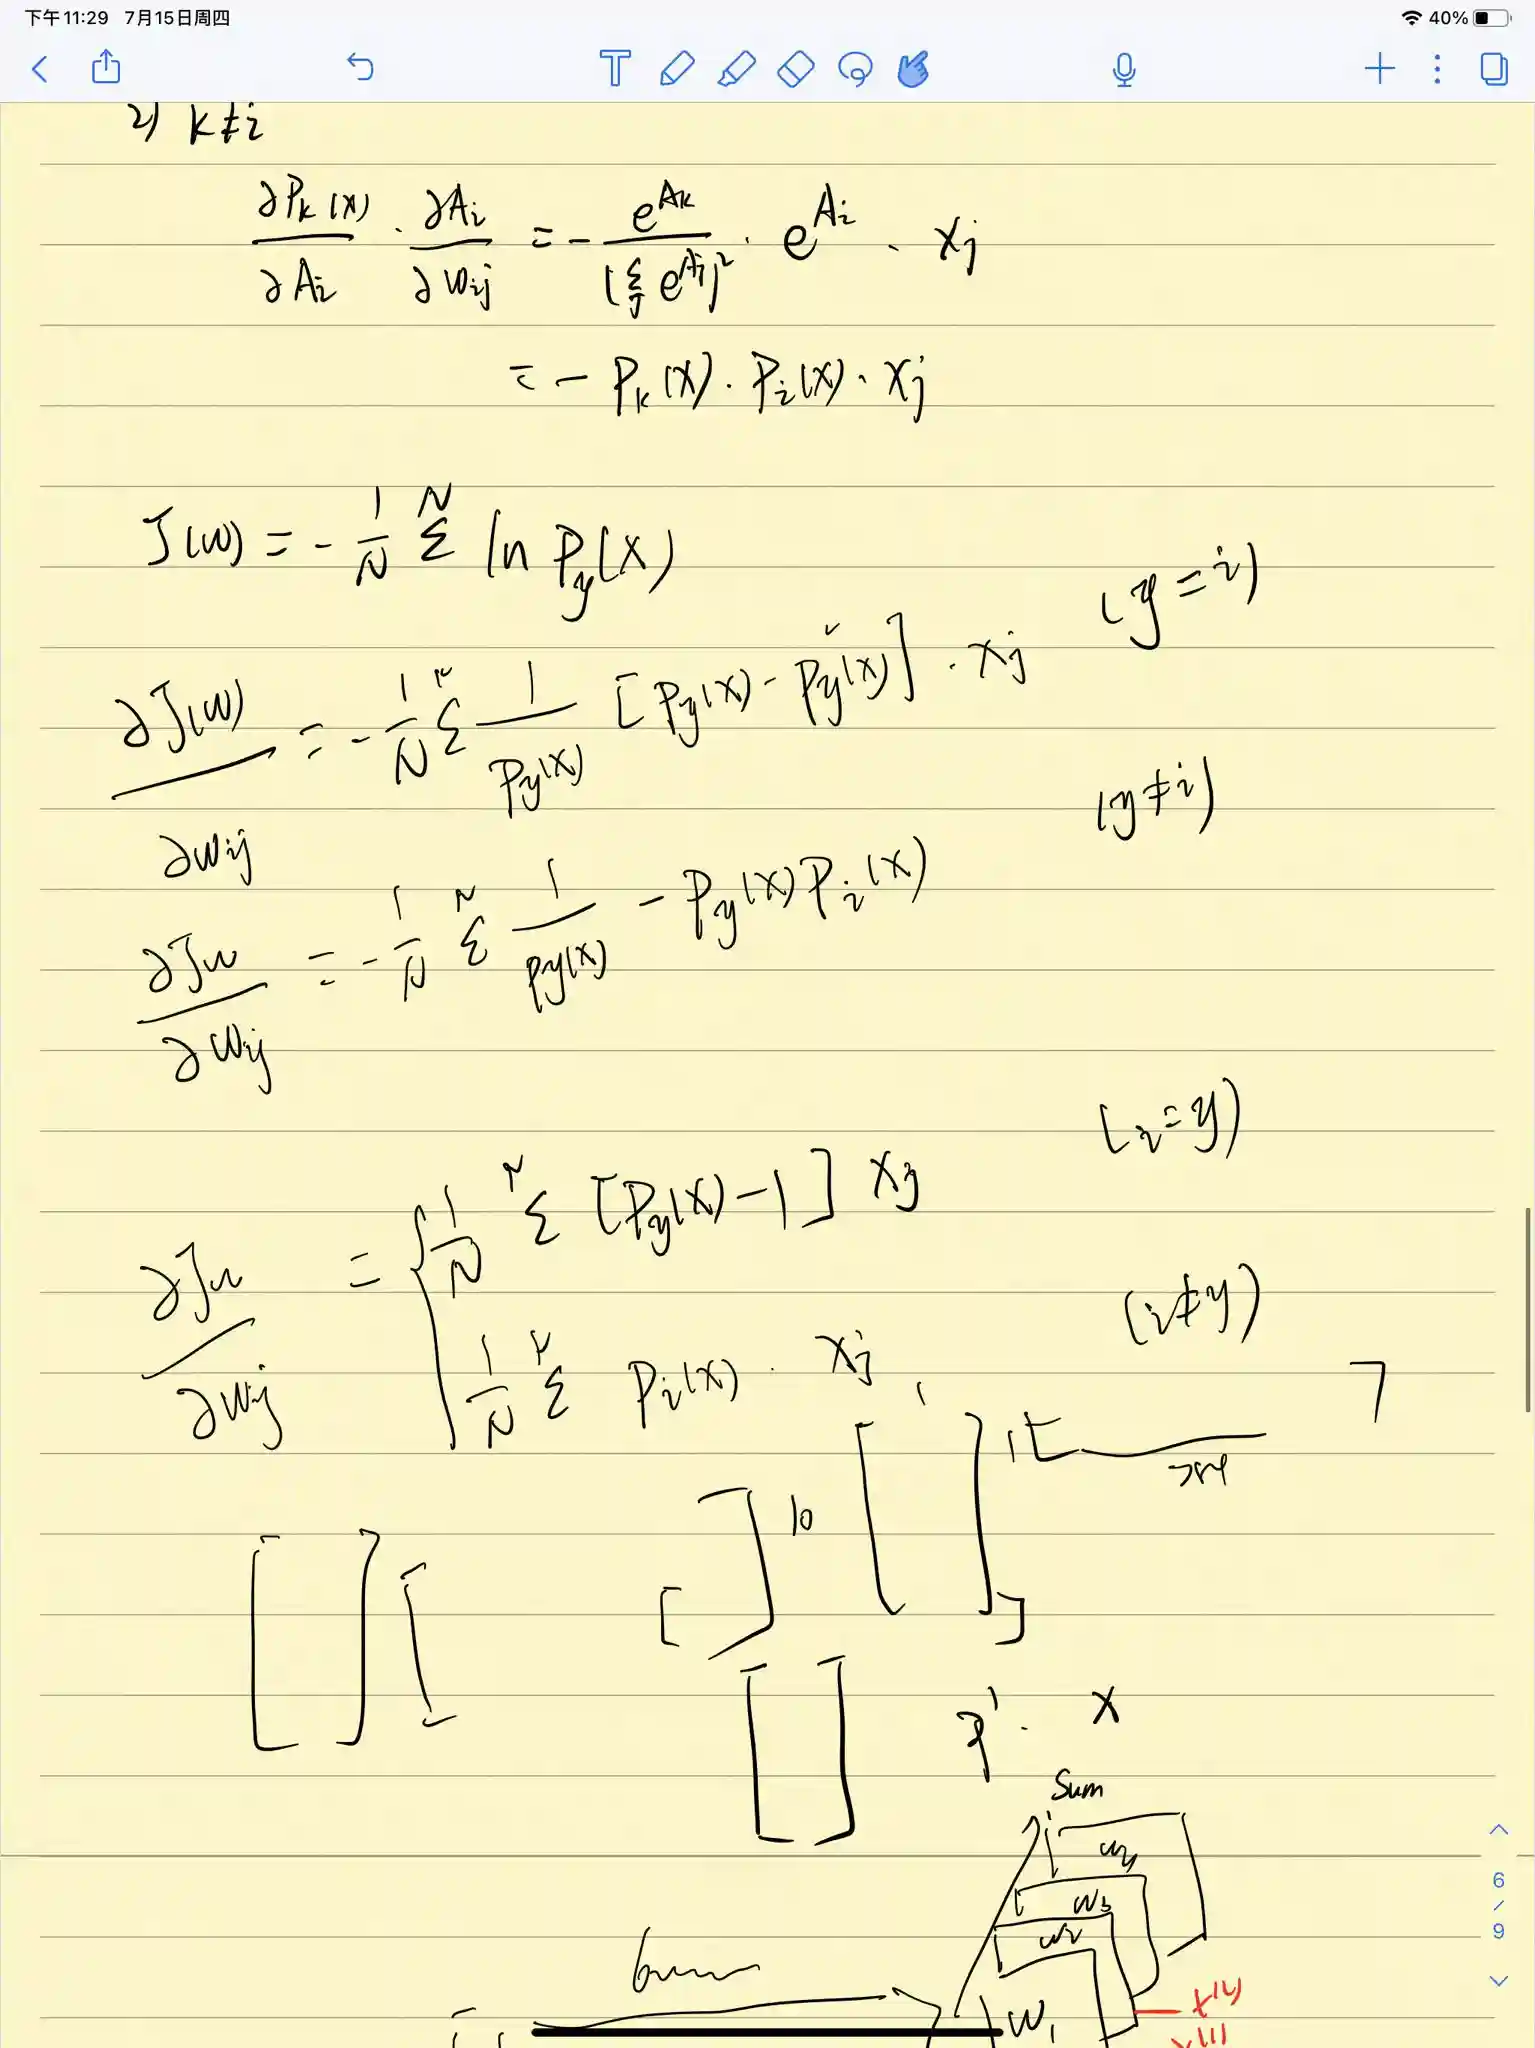 下午11:29 7月15日周四
40%
2) k≠i
∂Pk(x)/∂Ai · ∂Ai/∂wij = - e^Ak/(Σj e^Aj)² · e^Ai · xj
= - Pk(x) · Pi(x) · xj
J(w) = - 1/N Σ^N ln Py(x)
(y=i)
∂J(w)/∂wij = - 1/N Σ^N 1/Py(x) [Py(x) - Py²(x)] · xj
(y≠i)
∂Jw/∂wij = - 1/N Σ^N 1/Py(x) - Py(x)Pi(x)
(i=y)
∂Jw/∂wij = { 1/N Σ^N [Py(x)-1] xj
(i≠y)
1/N Σ^N Pi(x) · xj
10
P' · x
Sum
w4
w3
w2
w1
6/9